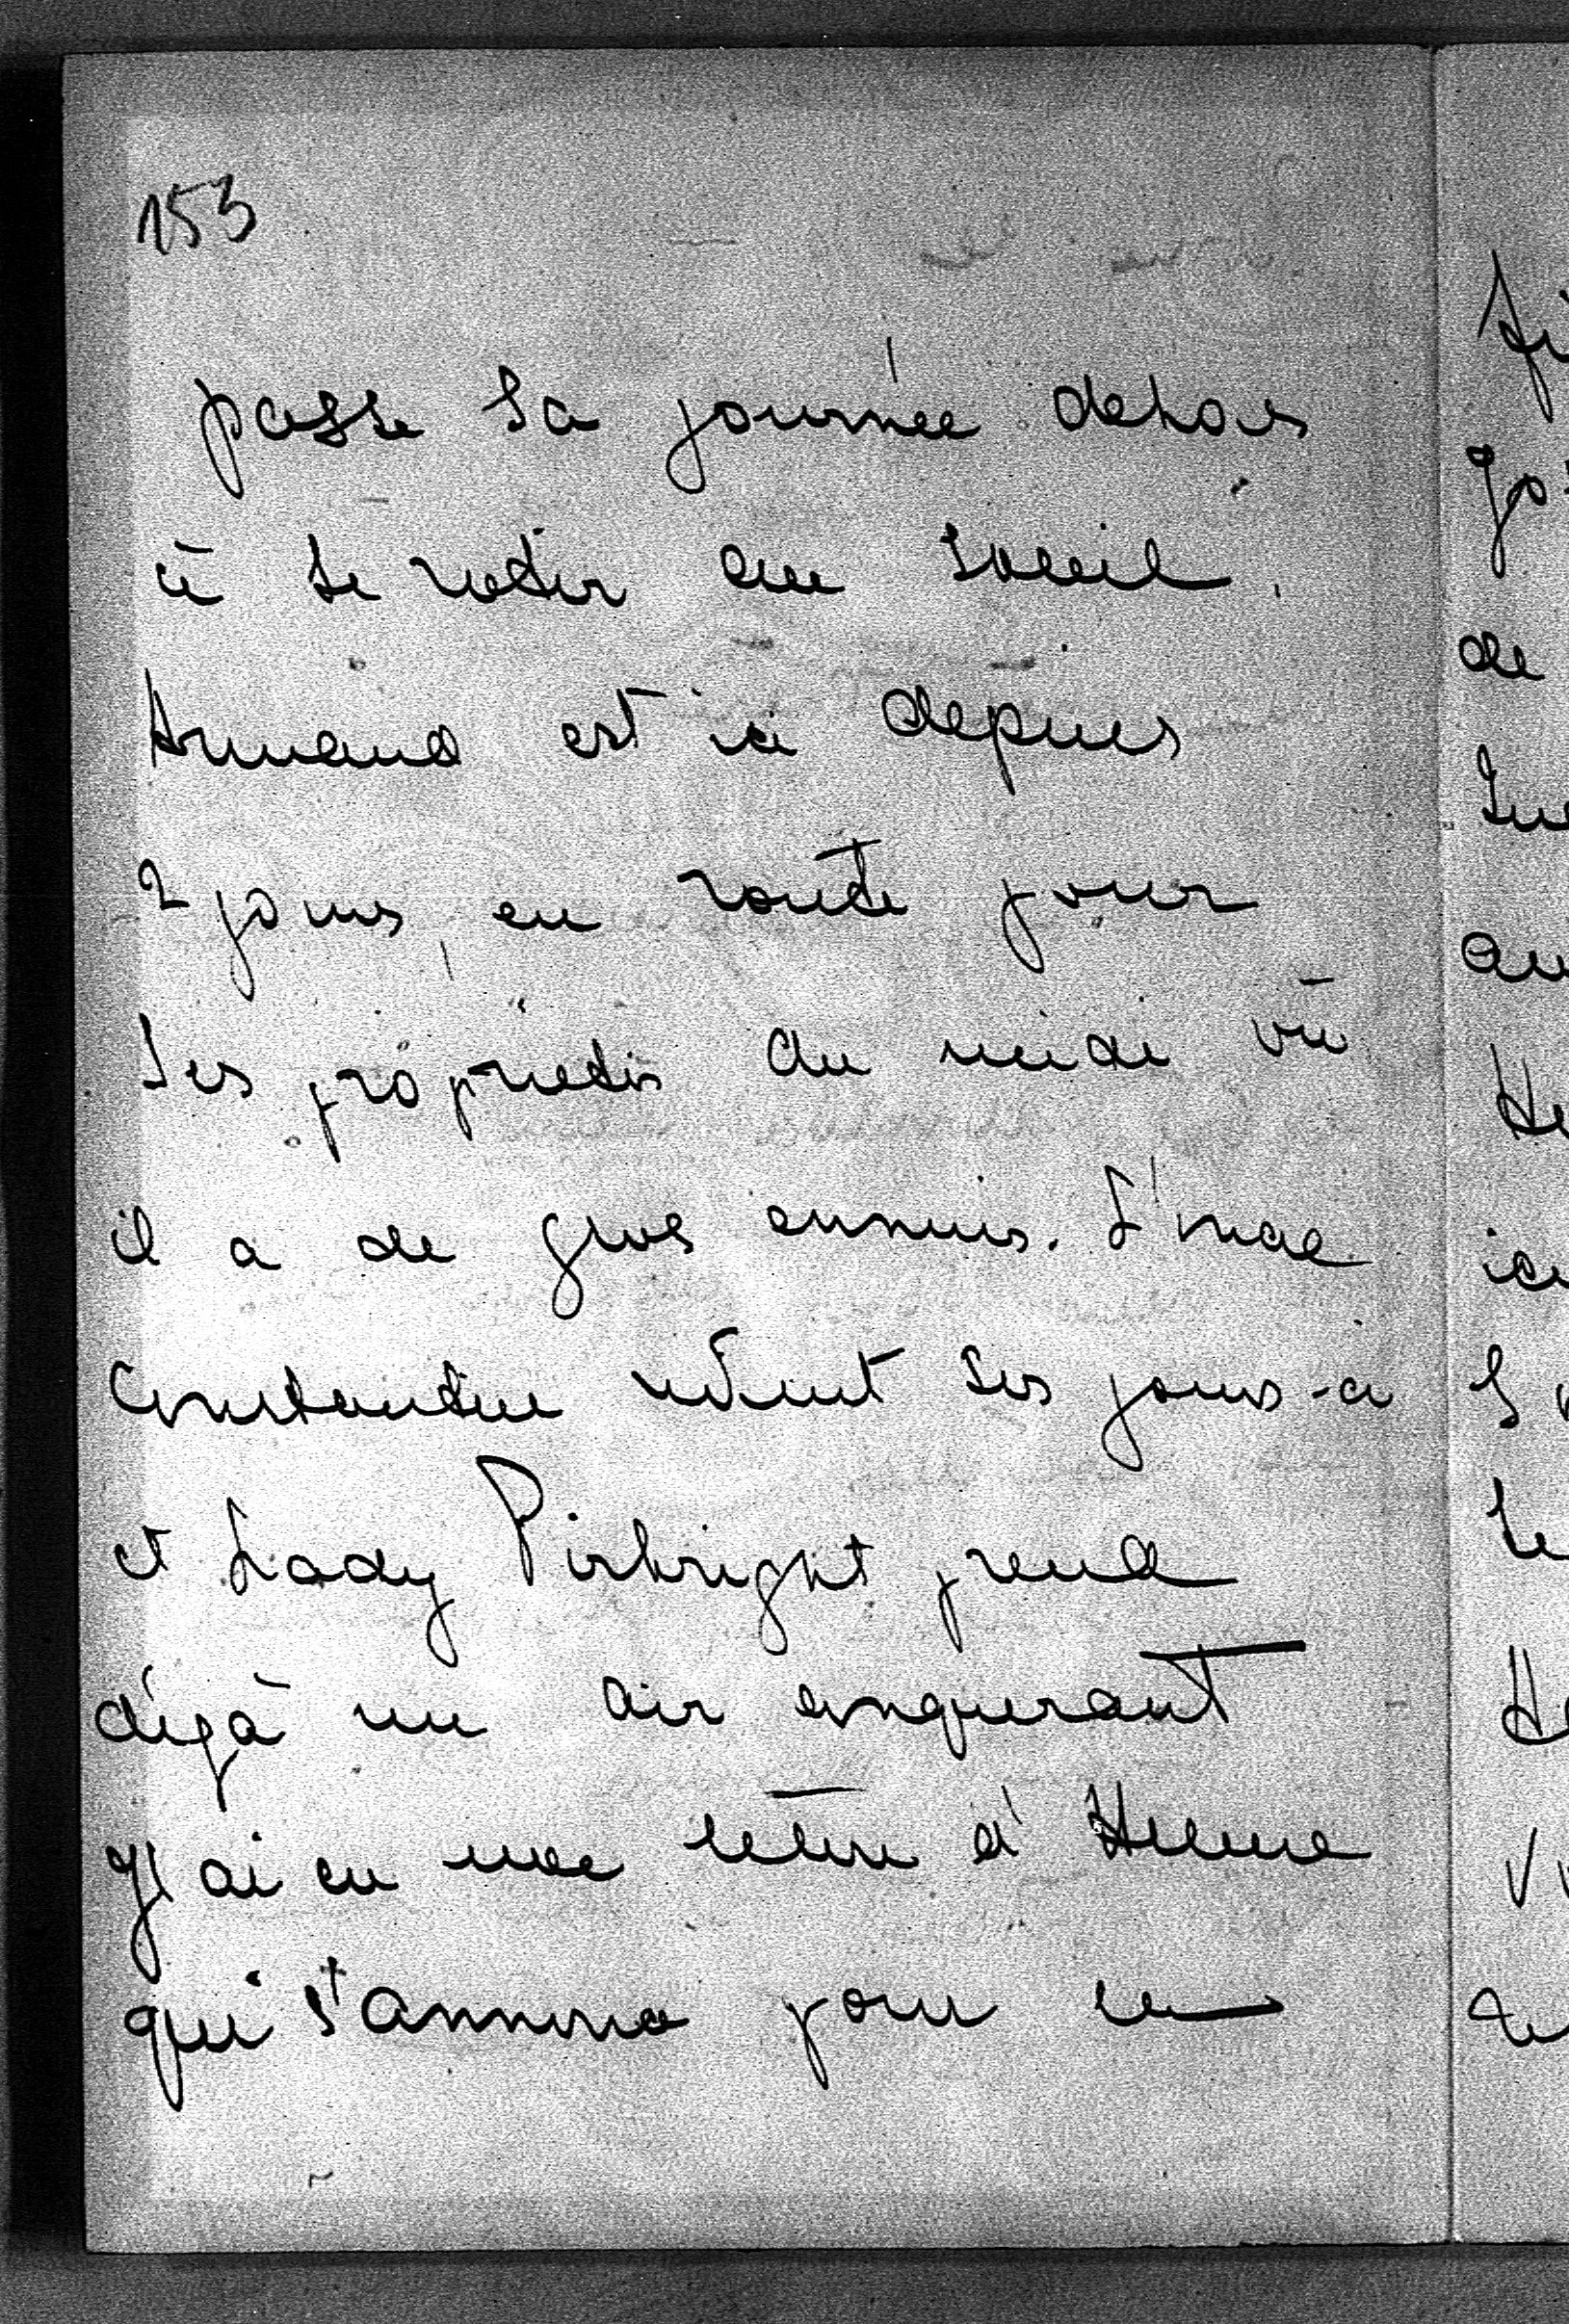 153
passe sa journée dehors
à se rotir au soleil.
Armand est ici depuis
2 jours, en route pour
ses propriétés du midi où
il a de gros ennuis. L'
Constantin revient ces jours-ci
et Lady Pirbright prend
déjà un air conquérant
J'ai eu une lettre d'
qui s'annonce pour le